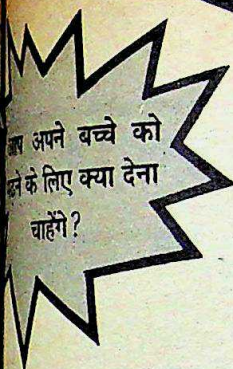 अपने बच्चे को
के लिए क्या देना
चाहेंगे?